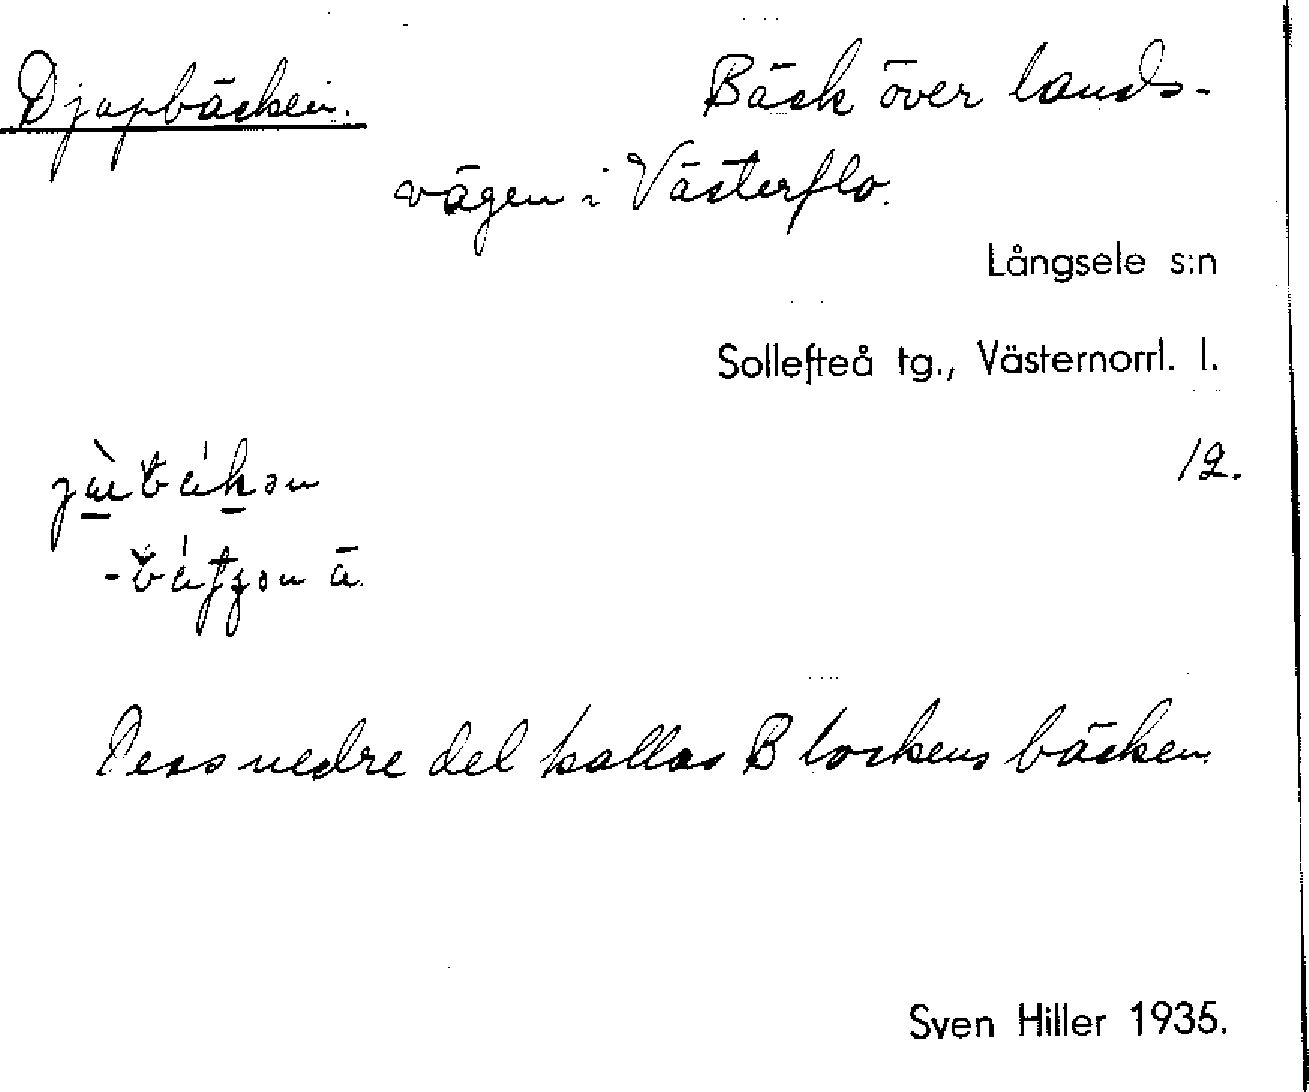 Djupbäcken.
Bäck över lands-
vägen i Västerflo.
Långsele s:n
Sollefteå tg., Västernorrl. l.
12.
Dess nedre del kallas Blockens bäcken
Sven Hiller 1935.